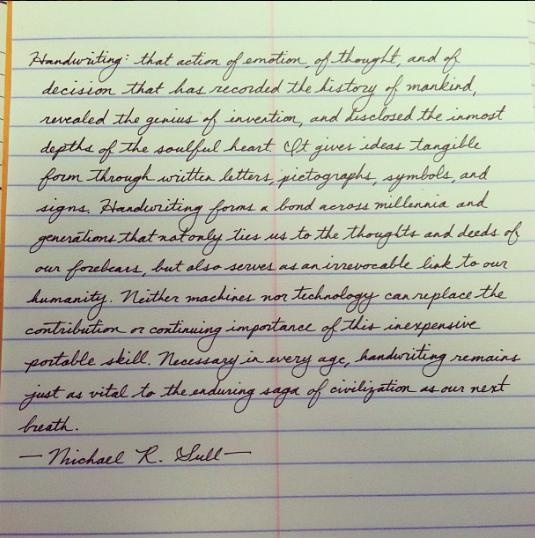 Handwriting: that action of emotion, of thought, and of
decision that has recorded the history of mankind,
revealed the genius of invention, and disclosed the inmost
depths of the soulful heart It gives ideas tangible
form through written letters, pictographs, symbols, and
signs. Handwriting forms a bond across millennia and
generations that not only ties us to the thoughts and deeds of
our forebears, but also serves as an irrevocable link to our
humanity. Neither machines nor technology can replace the
contribution or continuing importance of this inexpensive
portable skill. Necessary in every age, handwriting remains
just as vital to the enduring saga of civilization as our next
breath.
— Michael R. Sull —